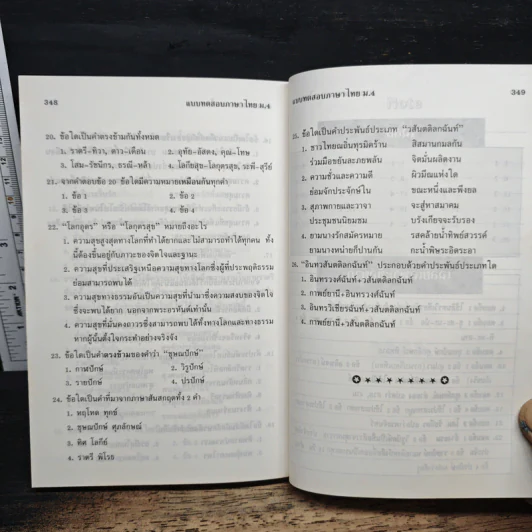 348
แบบทดสอบภาษาไทย ม.4
20. ข้อใดเป็นคำตรงข้ามกันทั้งหมด
1. ราตรี-ทิวา, ดาว-เดือน
2. อุทัย-อัสดง, คุณ-โทษ
3. โสม-รัชนีกร, ธรณี-หล้า
4. โลกียสุข-โลกุตรสุข, ระพี-สุรีย์
21. จากคำตอบข้อ 20 ข้อใดมีความหมายเหมือนกันทุกคำ
1. ข้อ 1
2. ข้อ 2
3. ข้อ 3
4. ข้อ 4
22. "โลกอุดร" หรือ "โลกุตรสุข" หมายถึงอะไร
1. ความสุขสูงสุดทางโลกที่ทำได้ยากและไม่สามารถทำได้ทุกคน ทั้ง
นี้ต้องขึ้นอยู่กับภาวะของจิตใจและฐานะ
2. ความสุขที่ประเสริฐเหนือความสุขทางโลกซึ่งผู้ที่ประพฤติธรรม
ย่อมสามารถพบได้
3. ความสุขทางธรรมอันเป็นความสุขที่นำมาซึ่งความสงบของจิตใจ
ซึ่งจะพบได้ยาก นอกจากพระอรหันต์เท่านั้น
4. ความสุขที่มั่นคงถาวรซึ่งสามารถพบได้ทั้งทางโลกและทางธรรม
หากผู้นั้นตั้งใจกระทำอย่างจริงจัง
23. ข้อใดเป็นคำตรงข้ามของคำว่า "ชุษณปักษ์"
1. กาฬปักษ์
2. วิรูปักษ์
3. รายปักษ์
4. ปรปักษ์
24. ข้อใดเป็นคำที่มาจากภาษาสันสกฤตทั้ง 2 คำ
1. พฤโหด ทุกข์
2. ชุษณปักษ์ ศุภลักษณ์
3. ทิศ โลกีย์
4. ราตรี พิโรธ
แบบทดสอบภาษาไทย ม.4
349
25. ข้อใดเป็นคำประพันธ์ประเภท "วสันตดิลกฉันท์"
1. ชาวไทยถนอมทุรมิตร้าน
สิสมานกมลกัน
ร่วมมือขยันและภยพลัน
จิตมั่นผดิงงาน
2. ความชั่วและความดี
ผิวมีณแห่งใด
ย่อมจักประจักษ์ใน
ขณะหนึ่งและพึงยล
3. สุภาพกายและวาจา
จะสู่หาสมาคม
ประชุมชนนิยมชม
บร้งเกียจจะรับรอง
4. ยามนางรักสมัครหมาย
รสคล้ายน้ำทิพย์สวรรค์
ยามนางหน่ายก็ปานกัน
กะน้ำพิษระอิดระอา
26. "อินทรวสันตดิลกฉันท์" ประกอบด้วยคำประพันธ์ประเภทใด
1. อินทรวงศ์ฉันท์+วสันตดิลกฉันท์
2. กาพย์ยานี+อินทรวงศ์ฉันท์
3. อินทรวิเชียรฉันท์+วสันตดิลกฉันท์
4. กาพย์ยานี+วสันตดิลกฉันท์